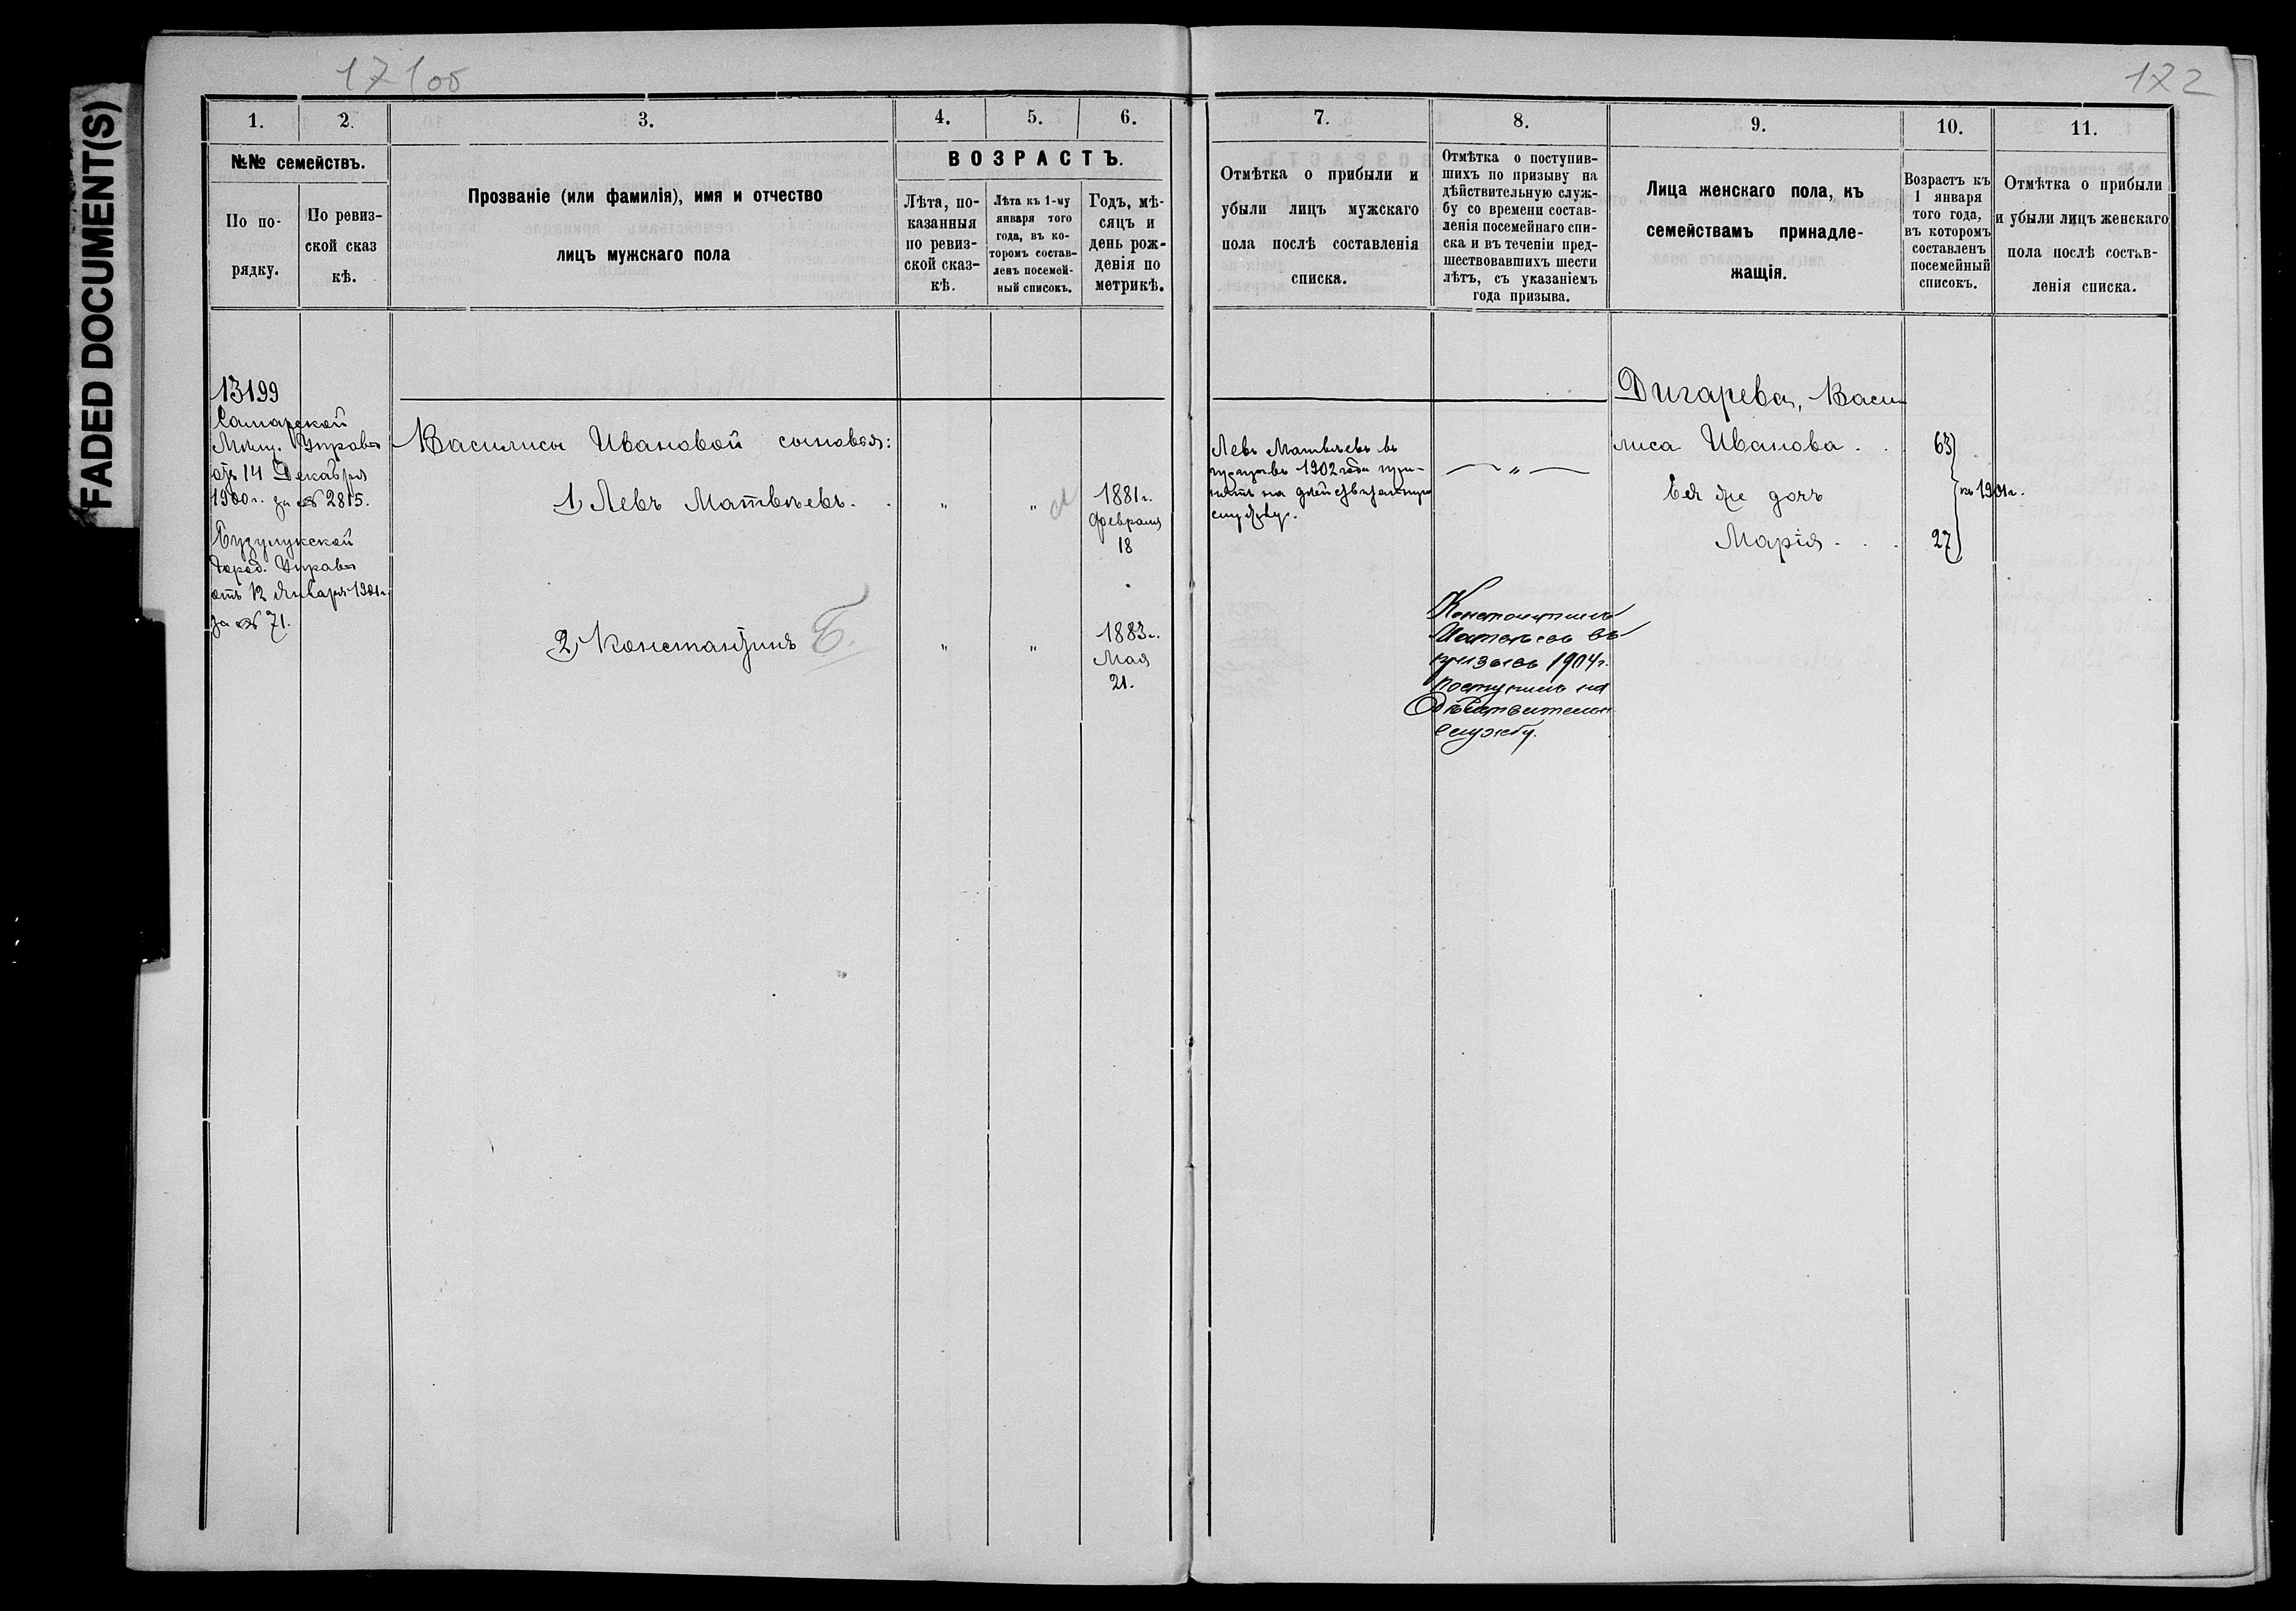 FADED DOCUMENT(S)
17100
172
1.
2.
3.
4.
5.
6.
№№ семействъ.
По по-
рядку.
По ревиз-
ской сказ
кѣ.
Прозваніе (или фамилія), имя и отчество
лицъ мужскаго пола
ВОЗРАСТЪ.
Лѣта, по-
казанныя
по ревиз-
ской сказ-
кѣ.
Лѣта къ 1-му
января того
года, въ ко-
торомъ состав-
ленъ посемей-
ный списокъ.
Годъ, мѣ-
сяцъ и
день рож-
денія по
метрикѣ.
7.
8.
9.
10.
11.
Отмѣтка о прибыли и
убыли лицъ мужскаго
пола послѣ составленія
списка.
Отмѣтка о поступив-
шихъ по призыву на
дѣйствительную служ-
бу со времени состав-
ленія посемейнаго спи-
ска и въ теченіи пред-
шествовавшихъ шести
лѣтъ, съ указаніемъ
года призыва.
Лица женскаго пола, къ
семействамъ принадле-
жащія.
Возрастъ къ
1 января
того года,
въ которомъ
составленъ
посемейный
списокъ.
Отмѣтка о прибыли
и убыли лицъ женскаго
пола послѣ состав-
ленія списка.
13199
Самарской
Мѣщ. Управы
отъ 14 Декабря
1900г. за № 2815.
Бузулукской
Город. Управы
отъ 12 Января 1901г.
за № 71.
Василисы Ивановой сыновья:
1) Левъ Матвѣевъ.
" "
1881г.
Февраля
18
2) Константинъ Б.
" "
1883г.
Мая
21.
Левъ Матвѣевъ въ
призывъ 1902 года при-
нятъ на дѣйствительную
службу.
"
Константинъ
Матвѣевъ въ
призывъ 1904г.
поступилъ на
Дѣйствительн
службу.
Дигарева, Васи-
лиса Иванова . . 63
Ея же дочь
Марія . . . 27
къ 1901г.